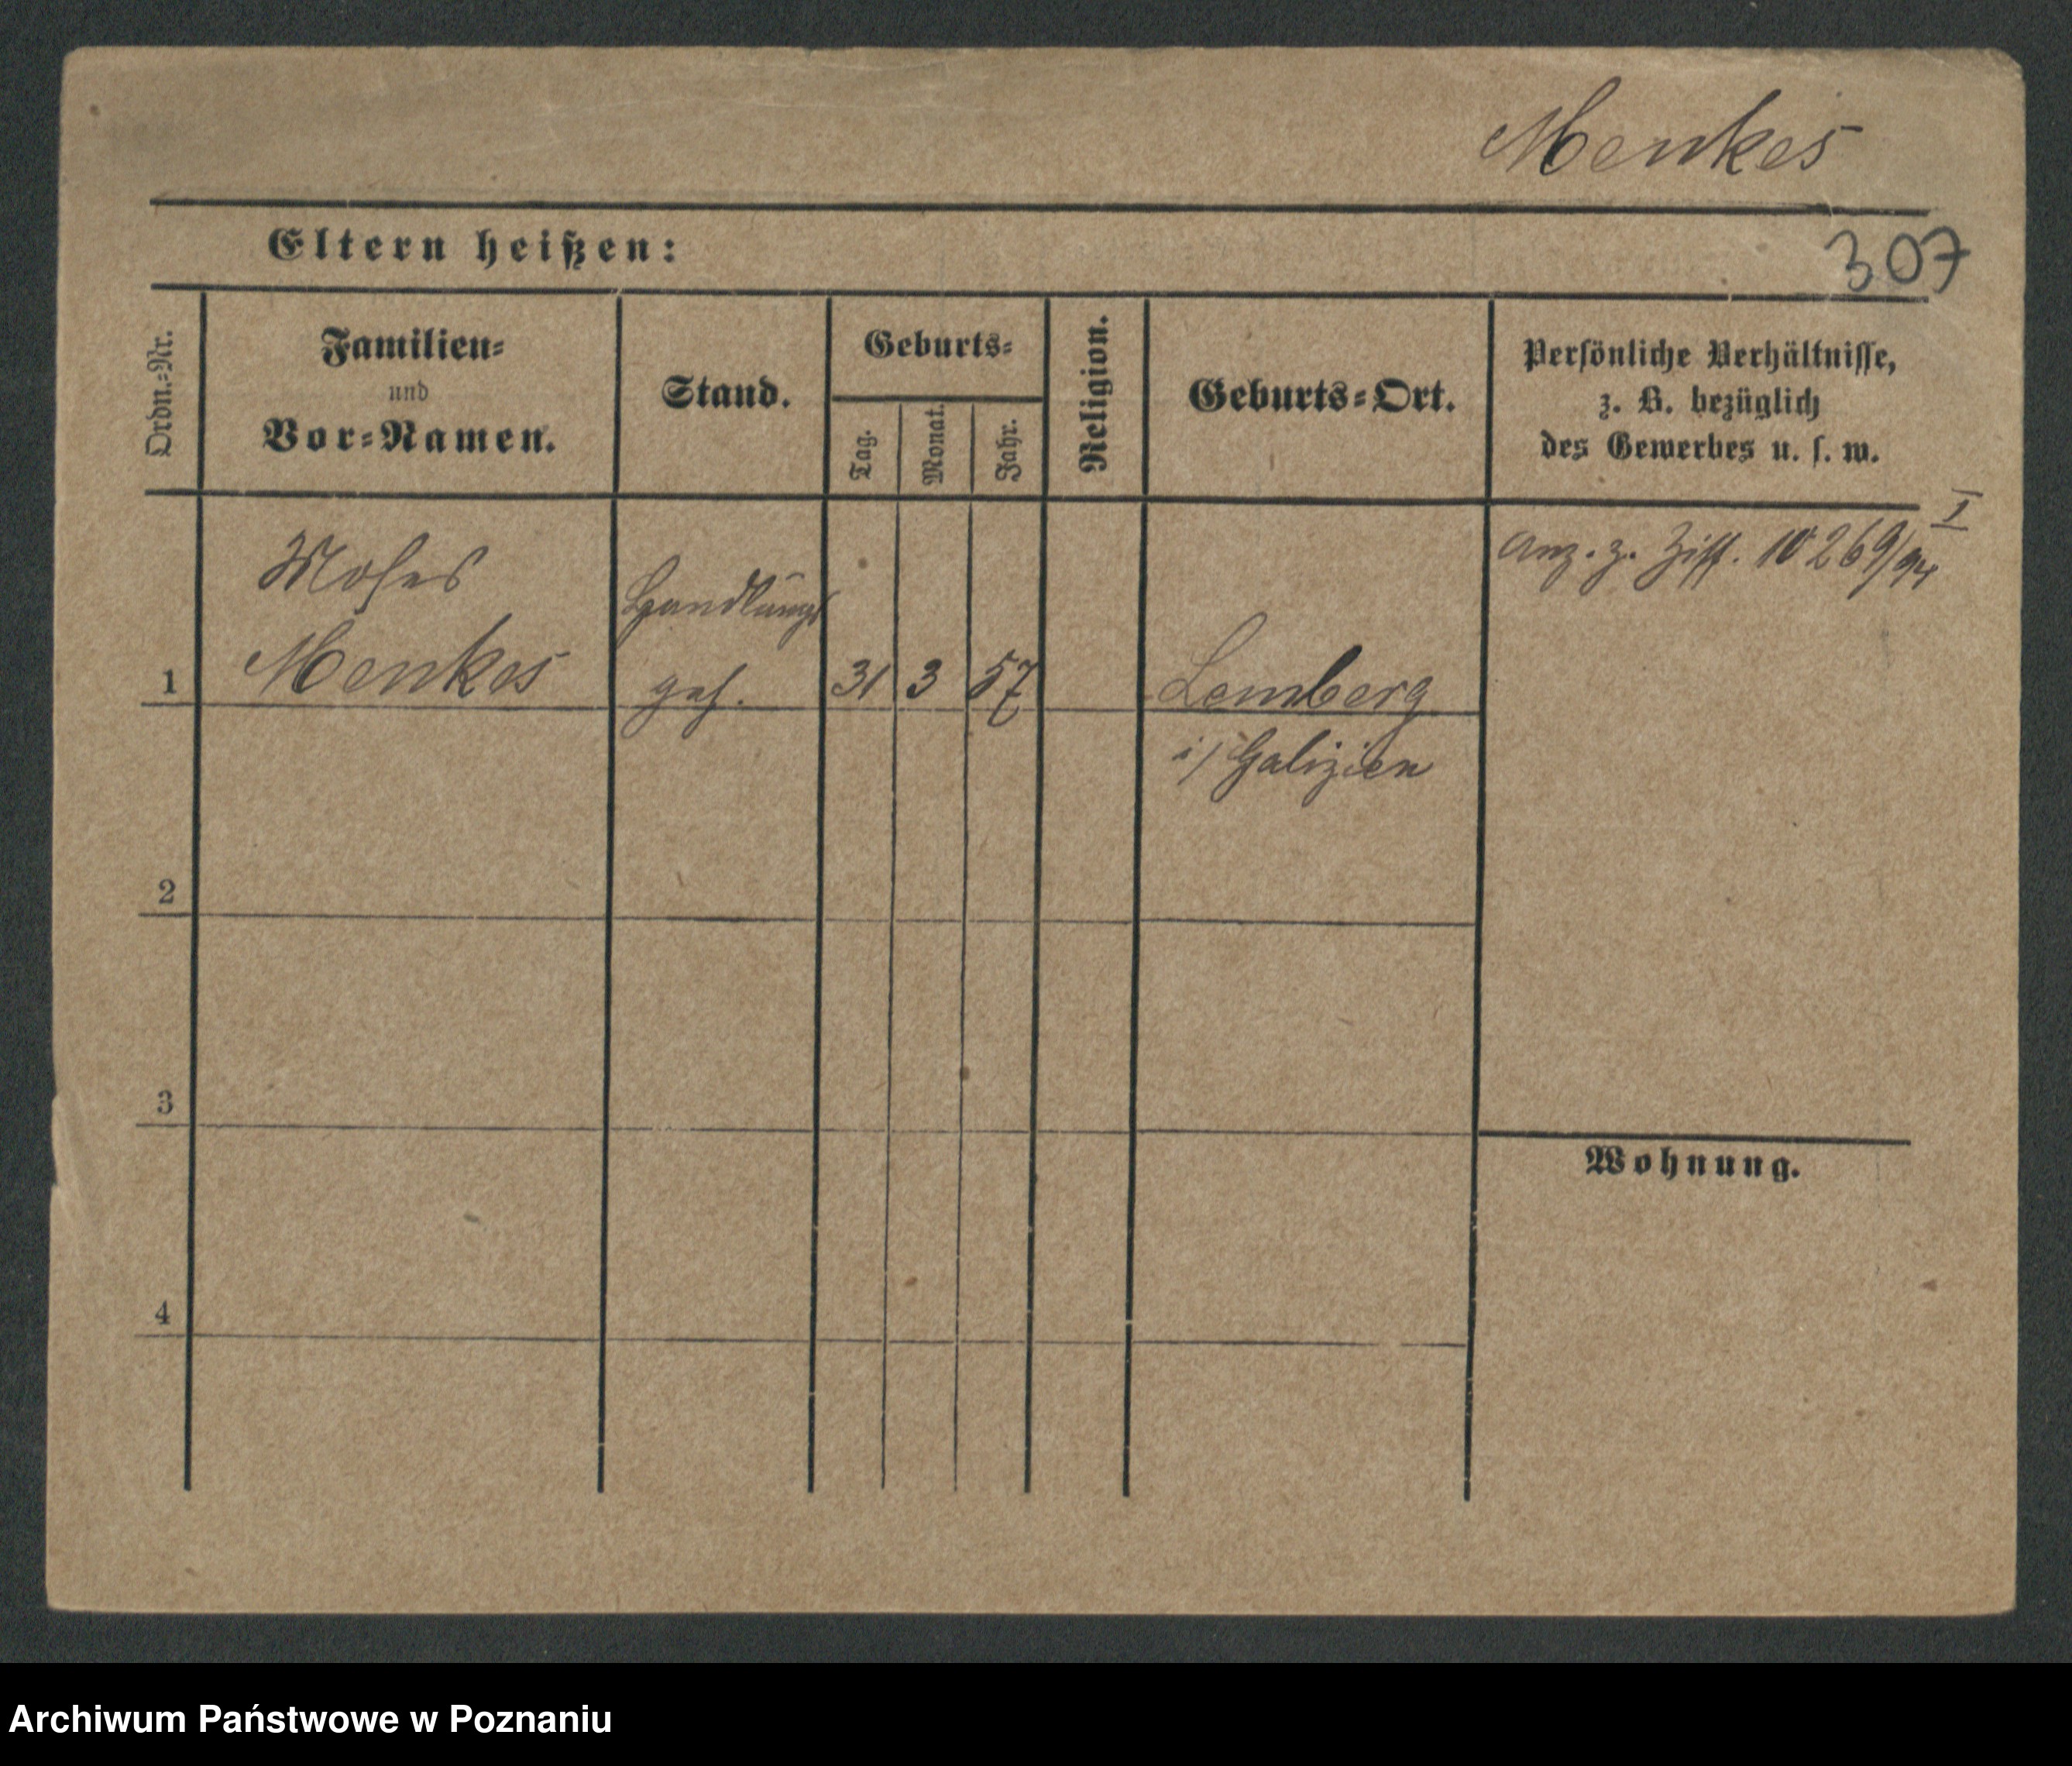 Menkes
Eltern heißen:
307
Ordn.=Nr.
Familien=
und
Vor=Namen.
Stand.
Geburts=
Tag.
Monat.
Jahr.
Religion.
Geburts=Ort.
Persönliche Verhältnisse,
z. B. bezüglich
des Gewerbes u. s. w.
Moses
Menkes
Handlungs
geh.
31
3
57
Lemberg
i/ Galizien
I
Anz. z. Ziff. 10269/94
1
2
3
4
Wohnung.
Archiwum Państwowe w Poznaniu